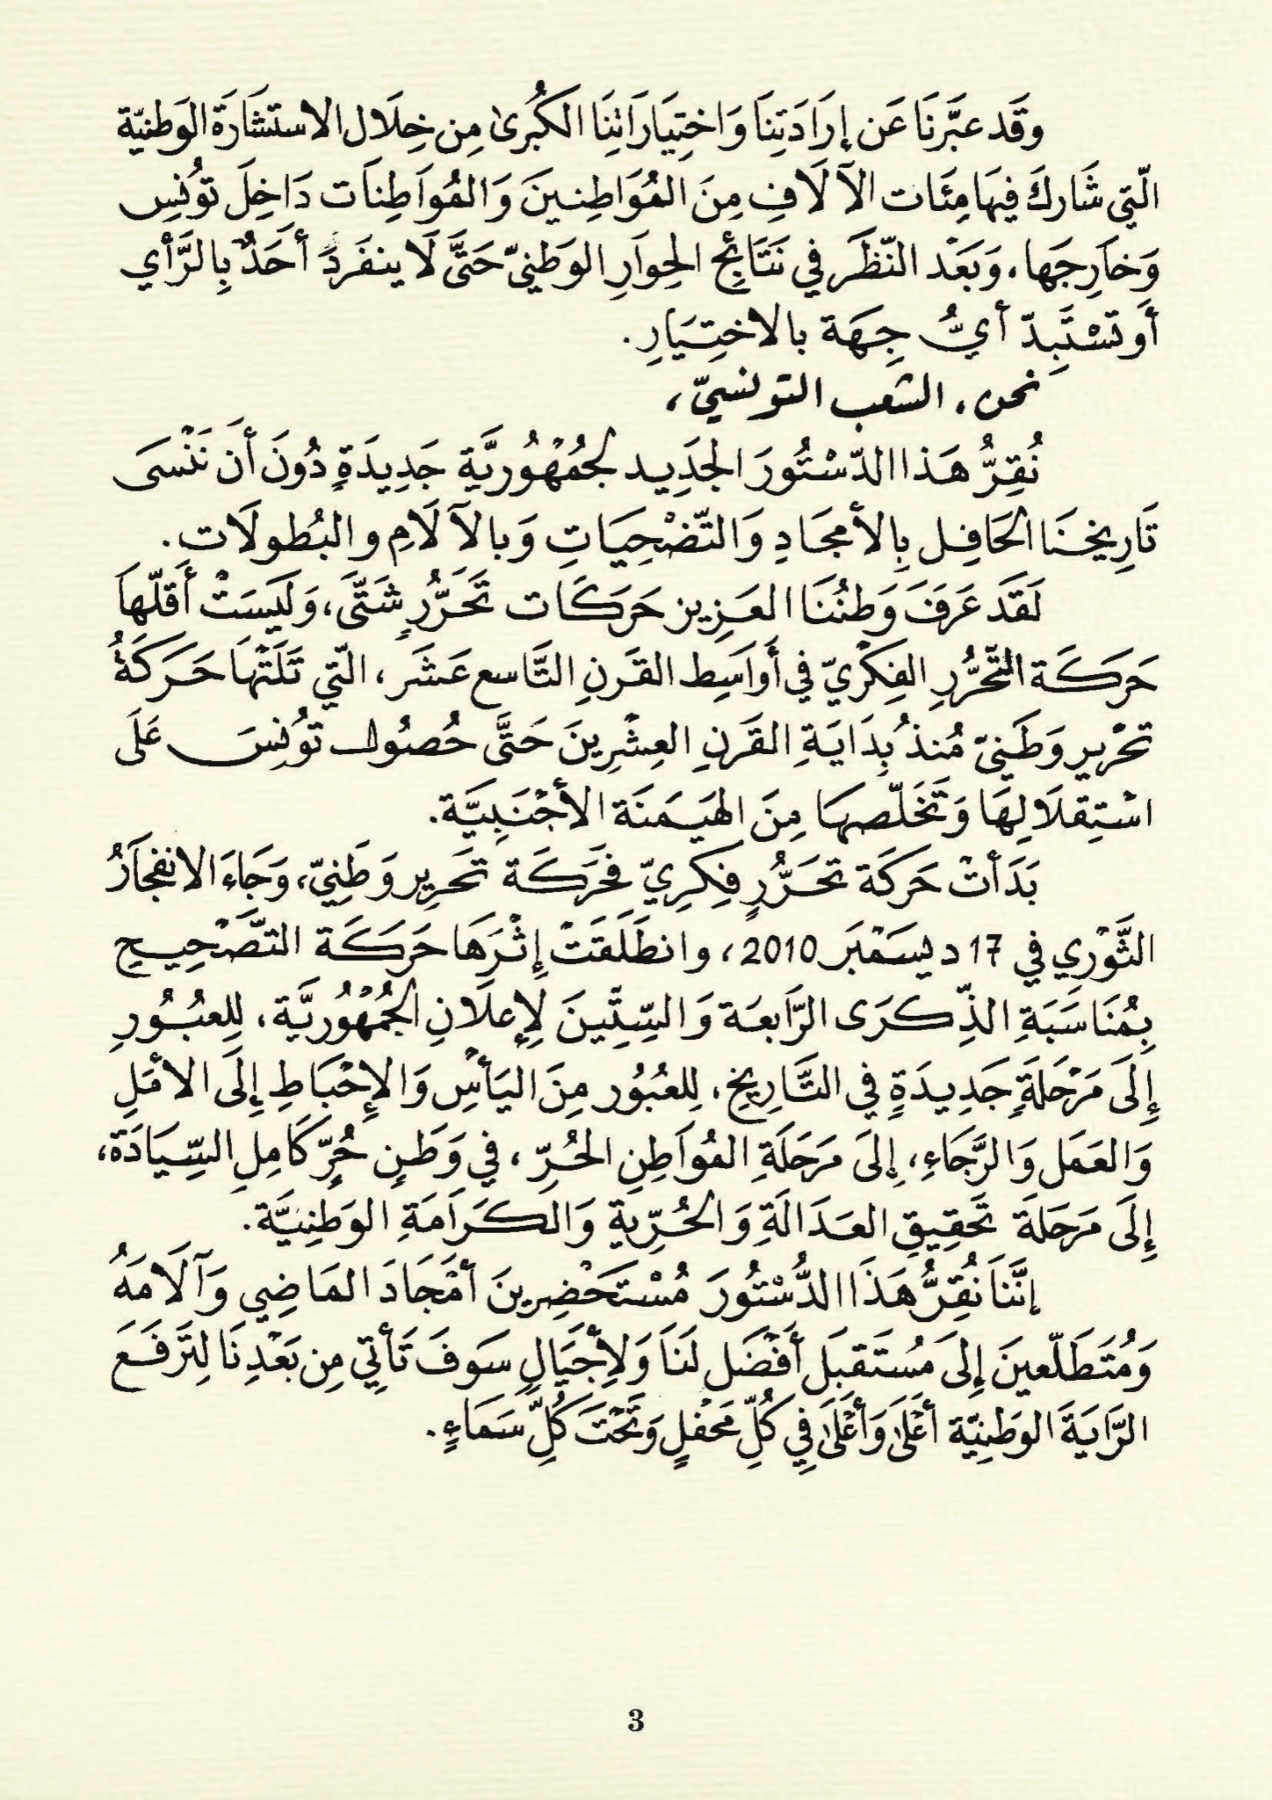 وقَد عبَّرنَا عَن إرَادَتِنَا وَاختِيَارَاتِنَا الكُبرىٰ مِن خِلَال الاستشَارَة الوَطنيّة
الّتي شَاركَ فِيهَا مِئَات الآلَافِ مِنَ المُوَاطِنينَ وَالمُواَطِنَات دَاخِلَ تُونِس
وَخاَرِجَها، وَبَعَد النّظَر في نَتَائِج الحِوَارِ الوَطَنيّ حَتَّى لَا ينفَردَ أحَدٌ بِالرَّأي
أو تَسْتَبِدّ أيُّ جِهَة بالاختِيَارِ.
نحن، الشعب التونسيّ،
نُقِرُّ هَذا الدّسْتُورَ الجَدِيد لجُمْهُوريَّةٍ جَدِيدَةٍ دُونَ أَن نَنْسَى
تَارِيخنَا الحَافِل بِالأمجَادِ وَالتّضْحِيَاتِ وَبالآلَامِ والبُطولَات.
لَقَد عَرَفَ وَطنُنَا العَزِيز حَرَكَات تَحَرُّرٍ شَتَّى، وَلَيسَتْ أَقَلّهاَ
حَرَكَة التّحَرُّرِ الفِكْرِيّ في أَوَاسِط القَرنِ التَّاسع عَشَر، الّتي تَلَتْهَا حَرَكَةُ
تحْرير وَطَنيّ مُنذُ بِدَايَةِ القَرنِ العِشْرِينَ حَتَّى حُصُول تُونِسَ عَلَى
اسْتِقلَالِهَا وَتَخَلّصهَا مِنَ الهَيَمنَة الأجْنَبِيَّة.
بَدَأتْ حَركَة تحَرُّرٍ فِكرِيّ فحَركَة تحَرِير وَطَنِيّ، وَجَاءَ الانفجَارُ
الثَّوْرِي في 17 ديسَمْبَر 2010، وانطَلَقَتْ إثْرَهَا حَرَكَة التصَّحْيِح
بِمُنَاسَبَةِ الذِّكرَى الرَّابعَة وَالسِّتِّينَ لِإعلَانِ الجُمْهُوريَّة، لِلعبُورِ
إِلَى مَرْحَلَةٍ جَدِيدَةٍ في التَّارِيخِ، لِلعُبُور مِنَ اليَأسْ وَالإحْبَاطِ إِلَى الأمَلِ
وَالعَمَل وَالرَّجَاءِ، إلىَ مَرحَلَةِ المُواَطِنِ الحُرّ، في وَطَنٍ حُرٍّ كَامِلِ السِّيَادَة،
إِلَى مَرحَلَة تَحقِيقِ العَدَالَةِ وَالحُرّيةِ وَالكَرَامَةِ الوَطِنيَّة.
إنَّنَا نُقِرُّ هَذَا الدُّسْتُورَ مُسْتَحَضِرينَ أمْجَادَ المَاضِي وَآلَامَهُ
وَمُتَطَلّعينَ إِلىَ مُستَقبَل أفضَل لنَا وَلأِجَيالٍ سَوفَ تَأتي مِن بَعْدِنَا لِتَرفَعَ
الرَّايَةَ الوَطنِيّة أعْلَىٰ وَأعْلَىٰ فِي كُلِّ مَحْفَلٍ وَتَحْتَ كُلِّ سَمَاءٍ.
3